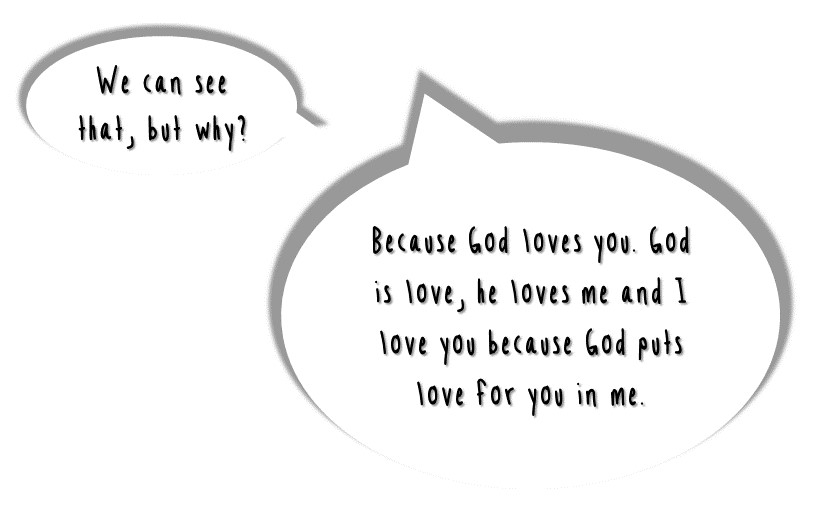 We can see
that, but why?
Because God loves you. God
is love, he loves me and I
love you because God puts
love for you in me.